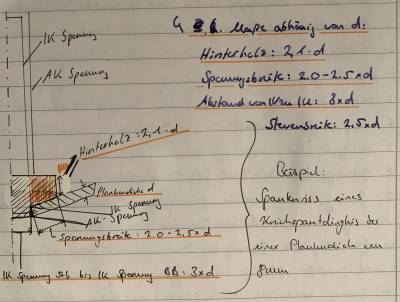 Maße abhänig von d:
Hinterholz: 2,1·d
Spannungsbreite: 2.0-2.5×d
Abstand von IK zu IK: 3×d
Stevenbreite: 2,5×d
IK Spannung
AK Spannung
Hinterholz: 2,1·d
Plankendicke d
IK Spannung
AK-Spannung
Spannungsbreite: 2.0-2.5×d
IK Spannung StB bis IK Spannung BB: 3×d
Beispiel:
eines
einer Plankendicke von
8mm